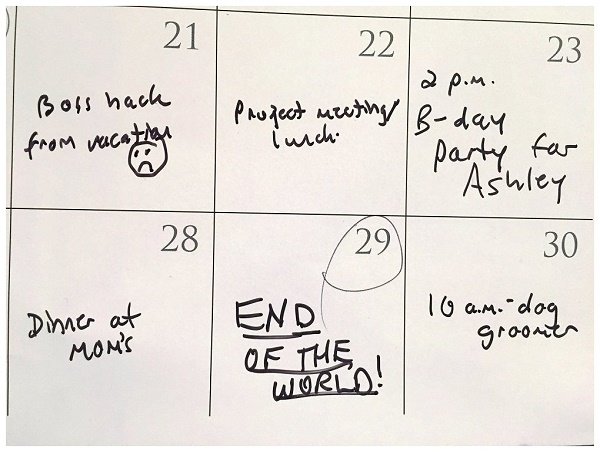 21
Boss back
from vacation
22
Project meeting/
lunch.
23
2 p.m.
B-day
Party for
Ashley
28
Dinner at
MOM's
29
END
OF THE
WORLD!
30
10 a.m.-dog
groomer